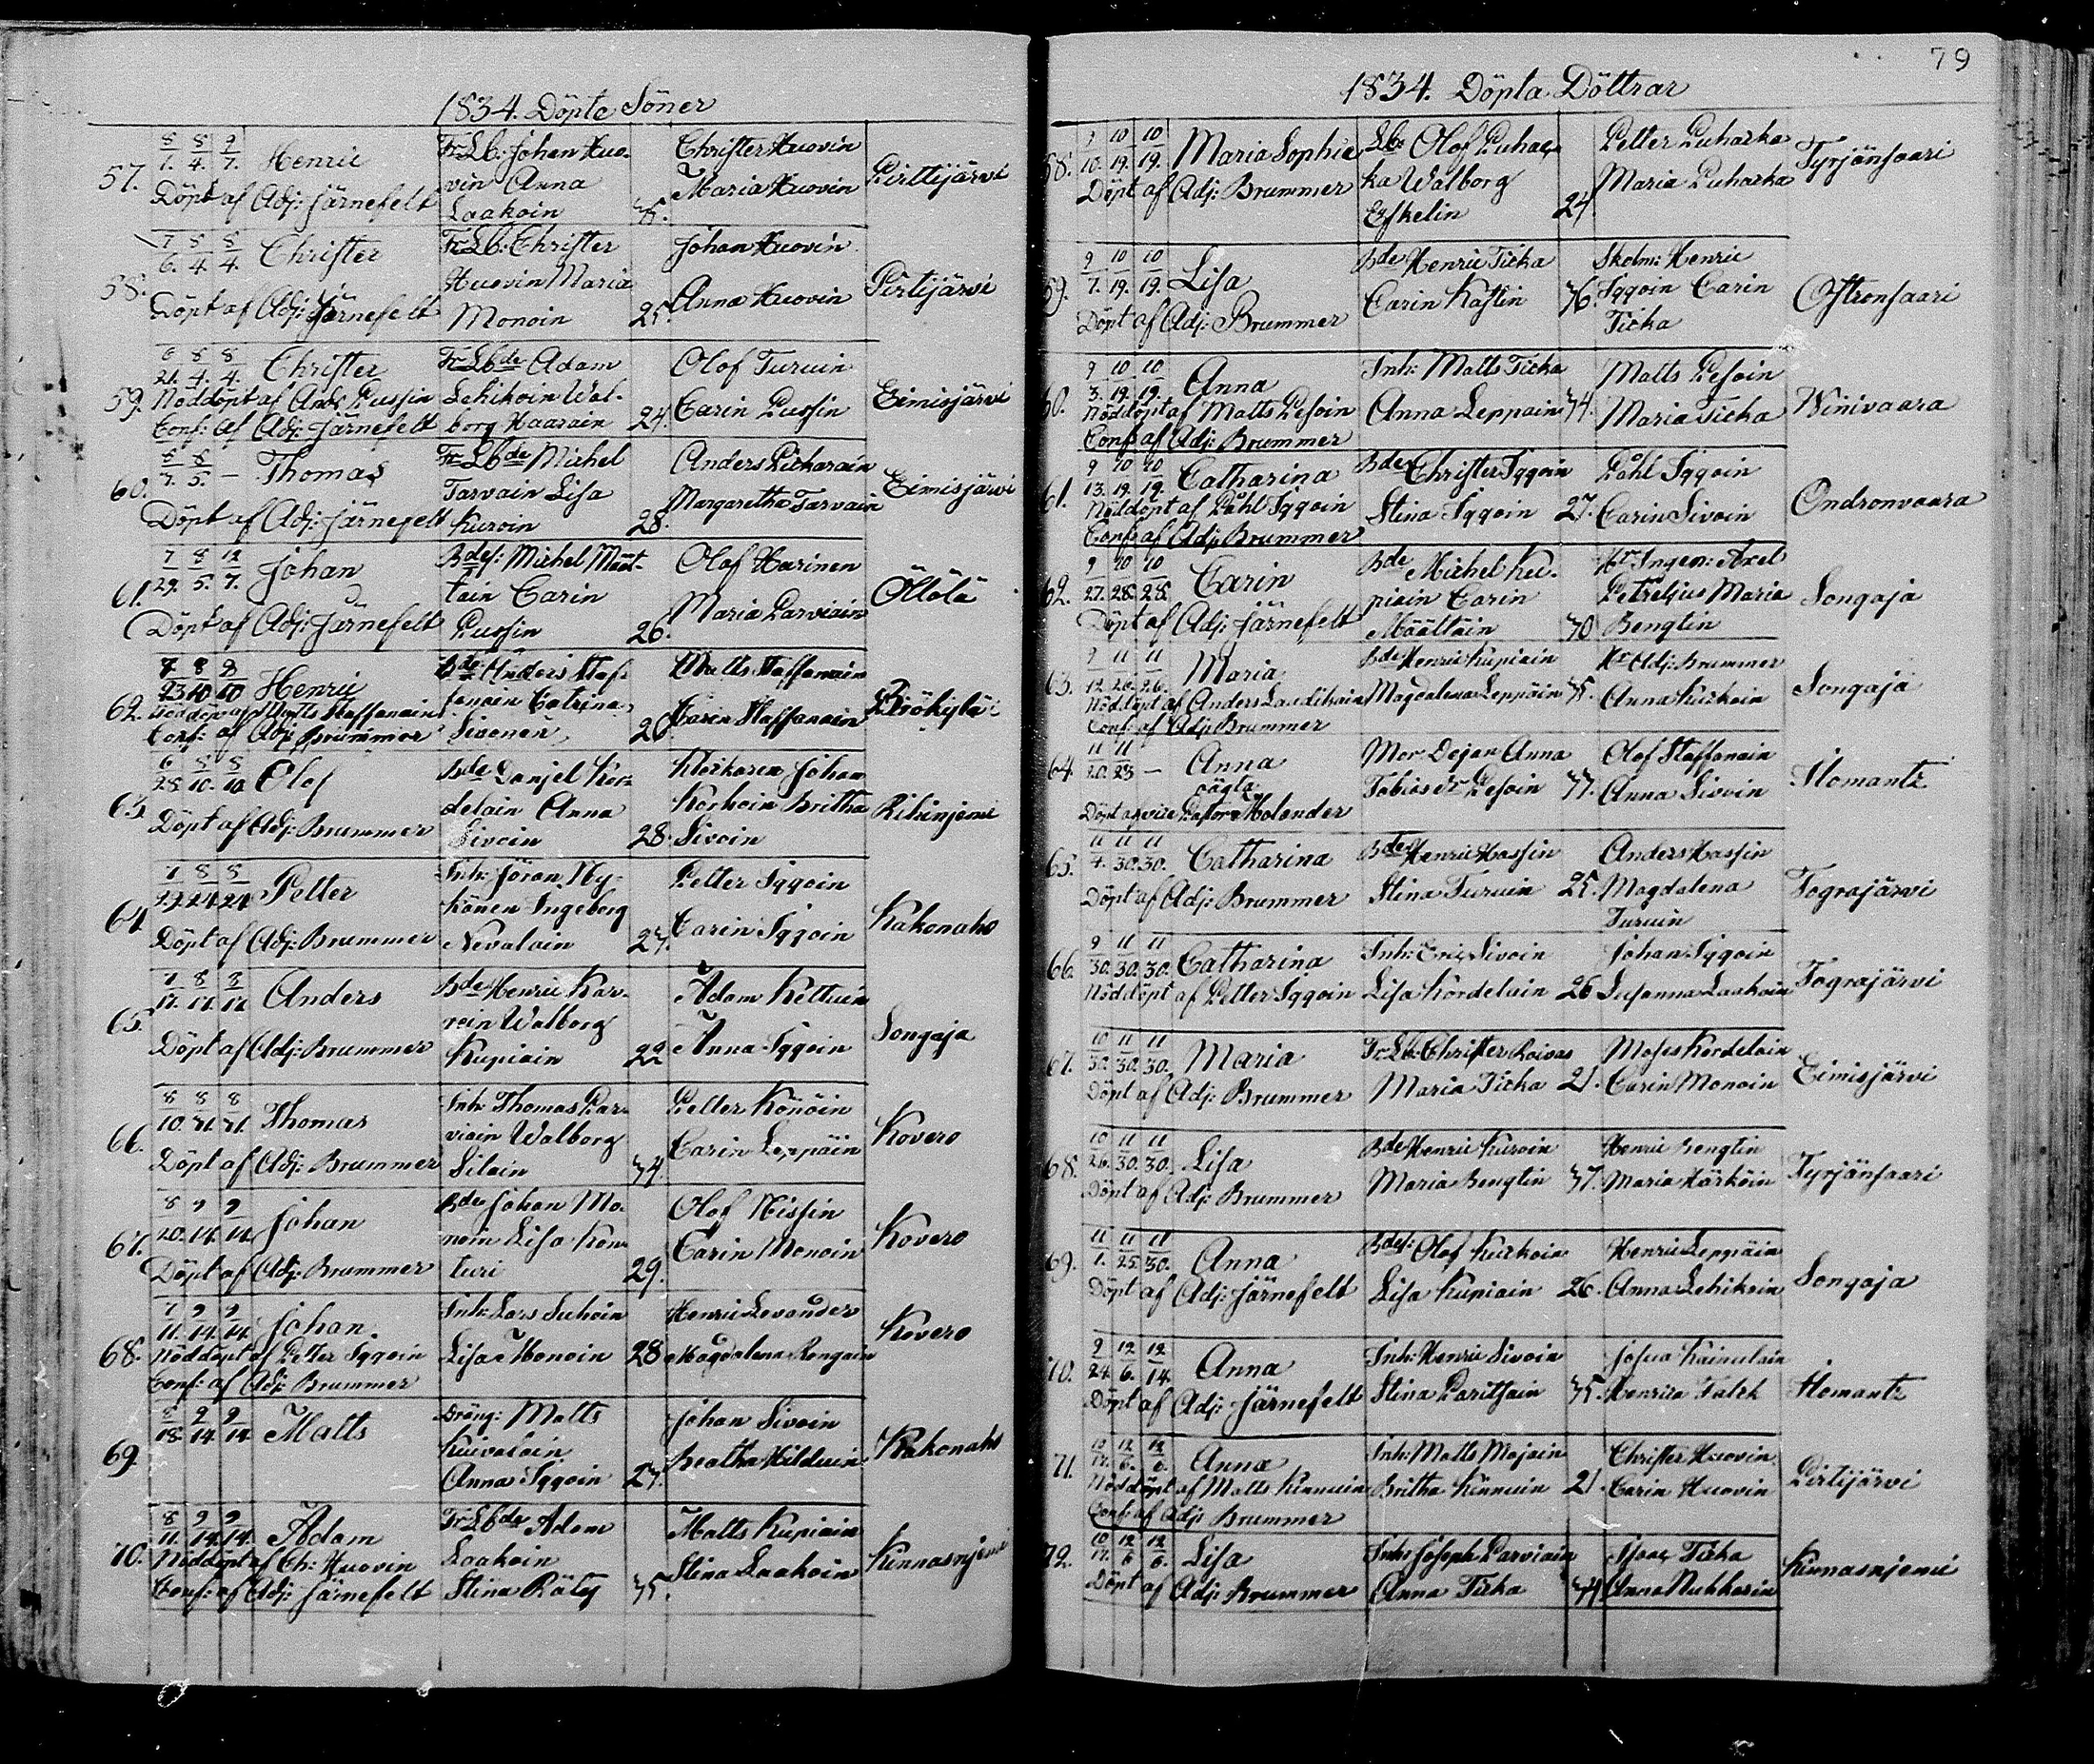 79
1834. Döpte Söner
57. 8/1. 8/4. 9/7. Henric
Fr Lb: Johan Huo-
vin Anna
Laakoin
Christer Huovin
Maria Huovin
Pirttijärvi
Döpt af Adj: Järnefelt
58. 7/6. 8/4. 8/4. Christer
Fr Lb: Christer
Huovin Maria
Monoin 25.
Johan Huovin
Anna Huovin
Pirtijärvi
Döpt af Adj: Järnefelt
59. 6/21. 8/4. 8/4. Christer
Nöddöpt af Ands Pussin
Conf: af Adj: Järnefelt
Fr Lbde Adam
Lehikoin Wal-
borg Haarain 24.
Olof Turuin
Carin Pussin
Eimisjärvi
60. 8/7. 8/5. – Thomas
Döpt af Adj: Järnefelt
Fr Lbde Michel
Tarvain Lisa
Kuroin 28.
Anders Pitkarain
Margaretha Tarvain
Eimisjärvi
61. 7/29. 8/5. 12/7. Johan
Döpt af Adj: Järnefelt
Bdes: Michel Määt-
täin Carin
Pussin 26.
Olof Harinen
Maria Parviain
Öllölä
62. 7/23 8/10 8/10 Henric
Nöddöpt af Matts Staffanain
Conf: af Adj: Brummer
Bde Anders Staf-
fanain Catrina
Sivonen 26
Matts Staffanain
Carin Staffanain
63. 6/28. 8/10. 8/10 Olof
Döpt af Adj: Brummer
Bde Danjel Kor-
delain Anna
Sivoin 28.
Klockaren Johan
Korhoin Britha
Sivoin
64. 7/22. 8/24. 8/24. Petter
Döpt af Adj: Brummer
Inh: Jöran Ny-
könen Ingeborg
Nevalain 27.
Petter Iggoin
Carin Iggoin
Kakonaho
65. 7/17. 8/17. 8/17. Anders
Döpt af Adj: Brummer
Bde Henric Kar-
vein Walborg
Kupiain 22
Adam Kettuin
Anna Iggoin
Songaja
66. 8/10. 8/31. 8/31. Thomas
Döpt af Adj: Brummer
Inh: Thomas Par-
viain Walborg
Silain 34.
Petter Könöin
Carin Leppäin
Kovero
67. 8/20. 9/14. 9/14. Johan
Döpt af Adj: Brummer
Bde Johan Mo-
noin Lisa Kon-
turi 29.
Olof Nissin
Carin Monoin
Kovero
68. 7/11. 9/14. 9/14. Johan.
Nöddöpt af Petter Iggoin
Conf: af Adj: Brummer
Inh: Lars Suhoin
Lisa Monoin 28
Henric Levander
Magdalena Rongain
Kovero
69. 8/18. 9/14. 9/14 Matts
Dräng: Matts
Kuivalain
Anna Iggoin 27.
Johan Sivoin
Beatha Hilduin
Kakonaho
70. 8/11. 9/14. 9/14. Adam
Nöddöpt af Ch: Huovin
Conf: af Adj: Järnefelt
Fr Lbde Adam
Laakoin
Stina Räty 35.
Matts Kupiain
Stina Laakoin
Kinnasnjemi
1834. Döpta Döttrar
58. 9/10. 10/19. 10/19. Maria Sophie
Döpt af Adj: Brummer
Lb: Olof Puhac-
ka Walborg
Eskelin 24
Petter Puhacka
Maria Puhacka
Tyrjänsaari
59. 9/7. 10/19. 10/19. Lisa
Döpt af Adj: Brummer
Bde Henric Ticka
Carin Kåstin 36.
Skolm: Henric
Iggoin Carin
Ticka
Ostronsaari
60. 9/3. 10/19. 10/19. Anna
Nöddöpt af Matts Pesoin
Conf: af Adj: Brummer
Inh: Matts Ticka
Anna Leppain 34.
Matts Pesoin
Maria Ticka
Winivaara
61. 9/13. 10/19. 10/19. Catharina
Nöddöpt af Påhl Iggoin
Conf: af Adj: Brummer
Bde Christer Iggoin
Stina Iggoin 27.
Påhl Iggoin
Carin Sivoin
Ondronvaara
62. 9/27. 10/28. 10/28. Carin
Döpt af Adj: Järnefelt
Bde Michel Ku-
piain Carin
Määttäin 30
Hr Ingen: Axel
Petreljus Maria
Bengtin
Songaja
63. 9/12. 11/26. 11/26. Maria
Nöddöpt af Anders Laudikain
Conf: af Adj: Brummer
Bde Henric Kupiain
Magdalena Leppäin 35.
Hr Adj: Brummer
Anna Kurkoin
Songaja
64. 11/20. 11/23 – Anna
oägta
Döpt af vice Pastor Molander
Mor Dejan Anna
Tobiasdr Pesoin 37.
Olof Staffanain
Anna Sivoin
Ilomantz
65. 11/4. 11/30. 11/30. Catharina
Döpt af Adj: Brummer
Bde Henric Hassin
Stina Turuin 25.
Anders Hassin
Magdalena
Turuin
Tograjärvi
66. 9/30. 11/30. 11/30. Catharina
Nöddöpt af Petter Iggoin
Inh: Eric Sivoin
Lisa Kordelain 26
Johan Iggoin
Susanna Laakoin
Tograjärvi
67. 10/30. 11/30. 11/30. Maria
Döpt af Adj: Brummer
Fr Lb: Christer Roivas
Maria Ticka 21.
Moses Kordelain
Carin Monoin
Eimisjärvi
68. 10/26. 11/30. 11/30. Lisa
Döpt af Adj: Brummer
Bde Henric Kuroin
Maria Bengtin 37.
Henric Bengtin
Maria Härköin
Tyrjänsaari
69. 11/1. 11/25. 11/30. Anna
Döpt af Adj: Järnefelt
Bdes: Olof Kurkoin
Lisa Kupiain 26.
Henric Leppäin
Anna Lehikoin
Songaja
70. 9/24. 12/6. 12/14. Anna
Döpt af Adj: Järnefelt
Inh: Henric Sivoin
Stina Paritsain 35.
Josua Kainulain
Henrica Falck
Ilomantz
71. 10/17. 12/6. 12/6. Anna
Nöddöpt af Matts Kinnuin
Conf: af Adj: Brummer
Inh: Matts Majoin
Britha Kinnuin 21.
Christer Huovin
Carin Huovin
Pirtijärvi
72. 10/17. 12/6 12/6. Lisa
Döpt af Adj: Brummer
Inh: Joseph Parviain
Anna Ticka 34
Isaac Ticka
Anna Nuhkarin
Kinnasnjemi